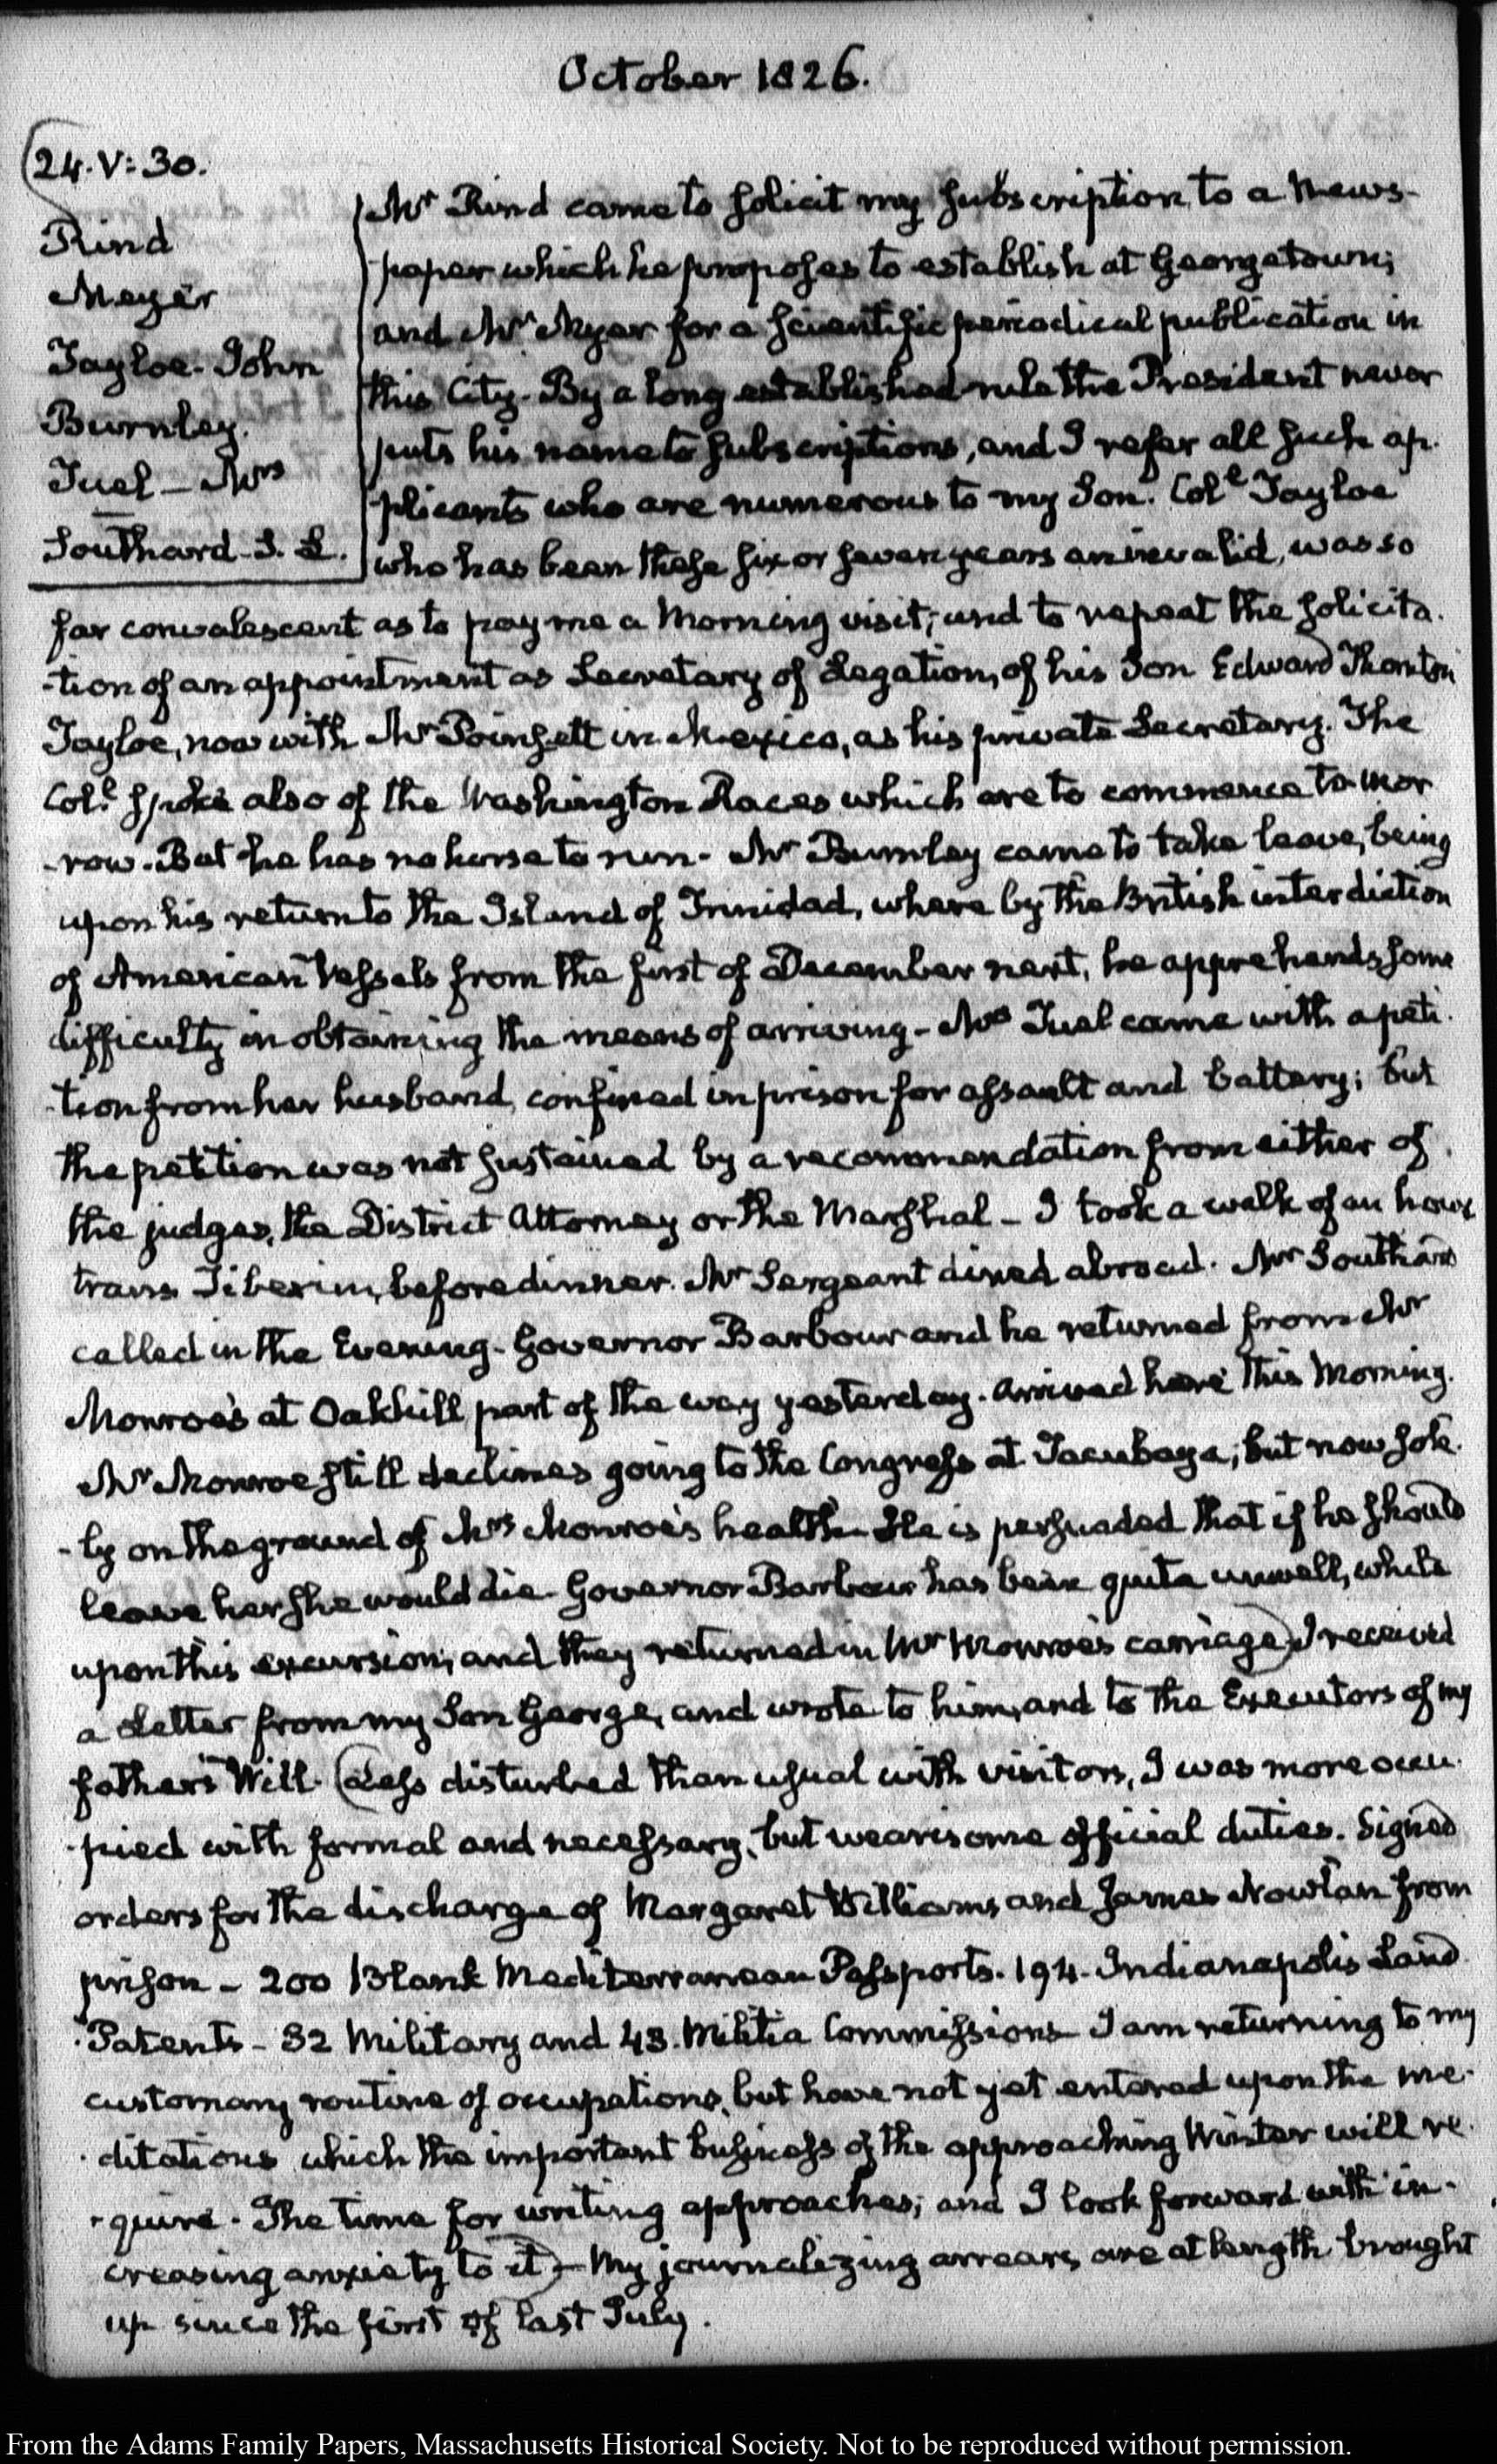 October 1826.
24. V: 30.
Rind
Meyer
Tayloe- John
Burnley.
Tuel - Mrs
Southard- S. L.
Mr Rind came to solicit my subscription to a News-
paper which he proposes to establish at Georgetown;
and Mr Myer for a scientific periodical publication in
this City. By a long established rule the President never
puts his name to subscriptions, and I refer all such ap-
plicants who are numerous to my Son. Coll Tayloe
who has been these six or seven years an invalid, was so
far convalescent as to pay me a Morning visit; and to repeat the solicita-
-tion of an appointment as Secretary of Legation, of his Son Edward Thornton
Tayloe, now with Mr Poinsett in Mexico, as his private Secretary. The
Coll spoke also of the Washington Races which are to commence to-mor
-row. But he has no horse to run- Mr Burnley came to take leave, being
upon his return to the Island of Trinidad, where by the British interdiction
of American Vessels from the first of December next, he apprehends some
difficulty in obtaining the means of arriving- Mrs Tuel came with a peti-
-tion from her husband, confined in prison for assault and battery; but
the petition was not sustained by a recommendation from either of
the judges, the District Attorney or the Marshal - I took a walk of an hour
trans Tiberim, before dinner. Mr Sergeant dined abroad. Mr Southard
called in the Evening. Governor Barbour and he returned from Mr
Monroe's at Oakhill part of the way yesterday. Arrived here this Morning.
Mr Monroe still declines going to the Congress at Tacubaya; but now sole-
-ly on the ground of Mrs Monroe's health. He is persuaded that if he should
leave her she would die. Governor Barbour has been quite unwell, while
upon this excursion; and they returned in Mr Monroe's carriage) I received
a Letter from my Son George, and wrote to him, and to the Executors of my
father's Will. (Less disturbed than usual with visitors, I was more occu-
-pied with formal and necessary, but wearisome official duties. Signed
orders for the discharge of Margaret Williams and James Nowlan from
prison - 200 Blank Mediterranean Passports. 194. Indianapolis Land
Patents - 32 Military and 43. Militia Commissions- I am returning to my
customary routine of occupations, but have not yet entered upon the me-
-ditations which the important business of the approaching Winter will re-
-quire. The time for writing approaches; and I look forward with in-
creasing anxiety to it) - My journalizing arrears, are at length brought
up since the first of last July.
From the Adams Family Papers, Massachusetts Historical Society. Not to be reproduced without permission.